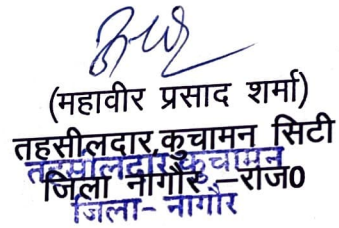 (महावीर प्रसाद शर्मा)
तहसीलदार,कुचामन सिटी
तहसीलदार, कुचामन
जिला नागौर,–राज0
जिला- नागौर